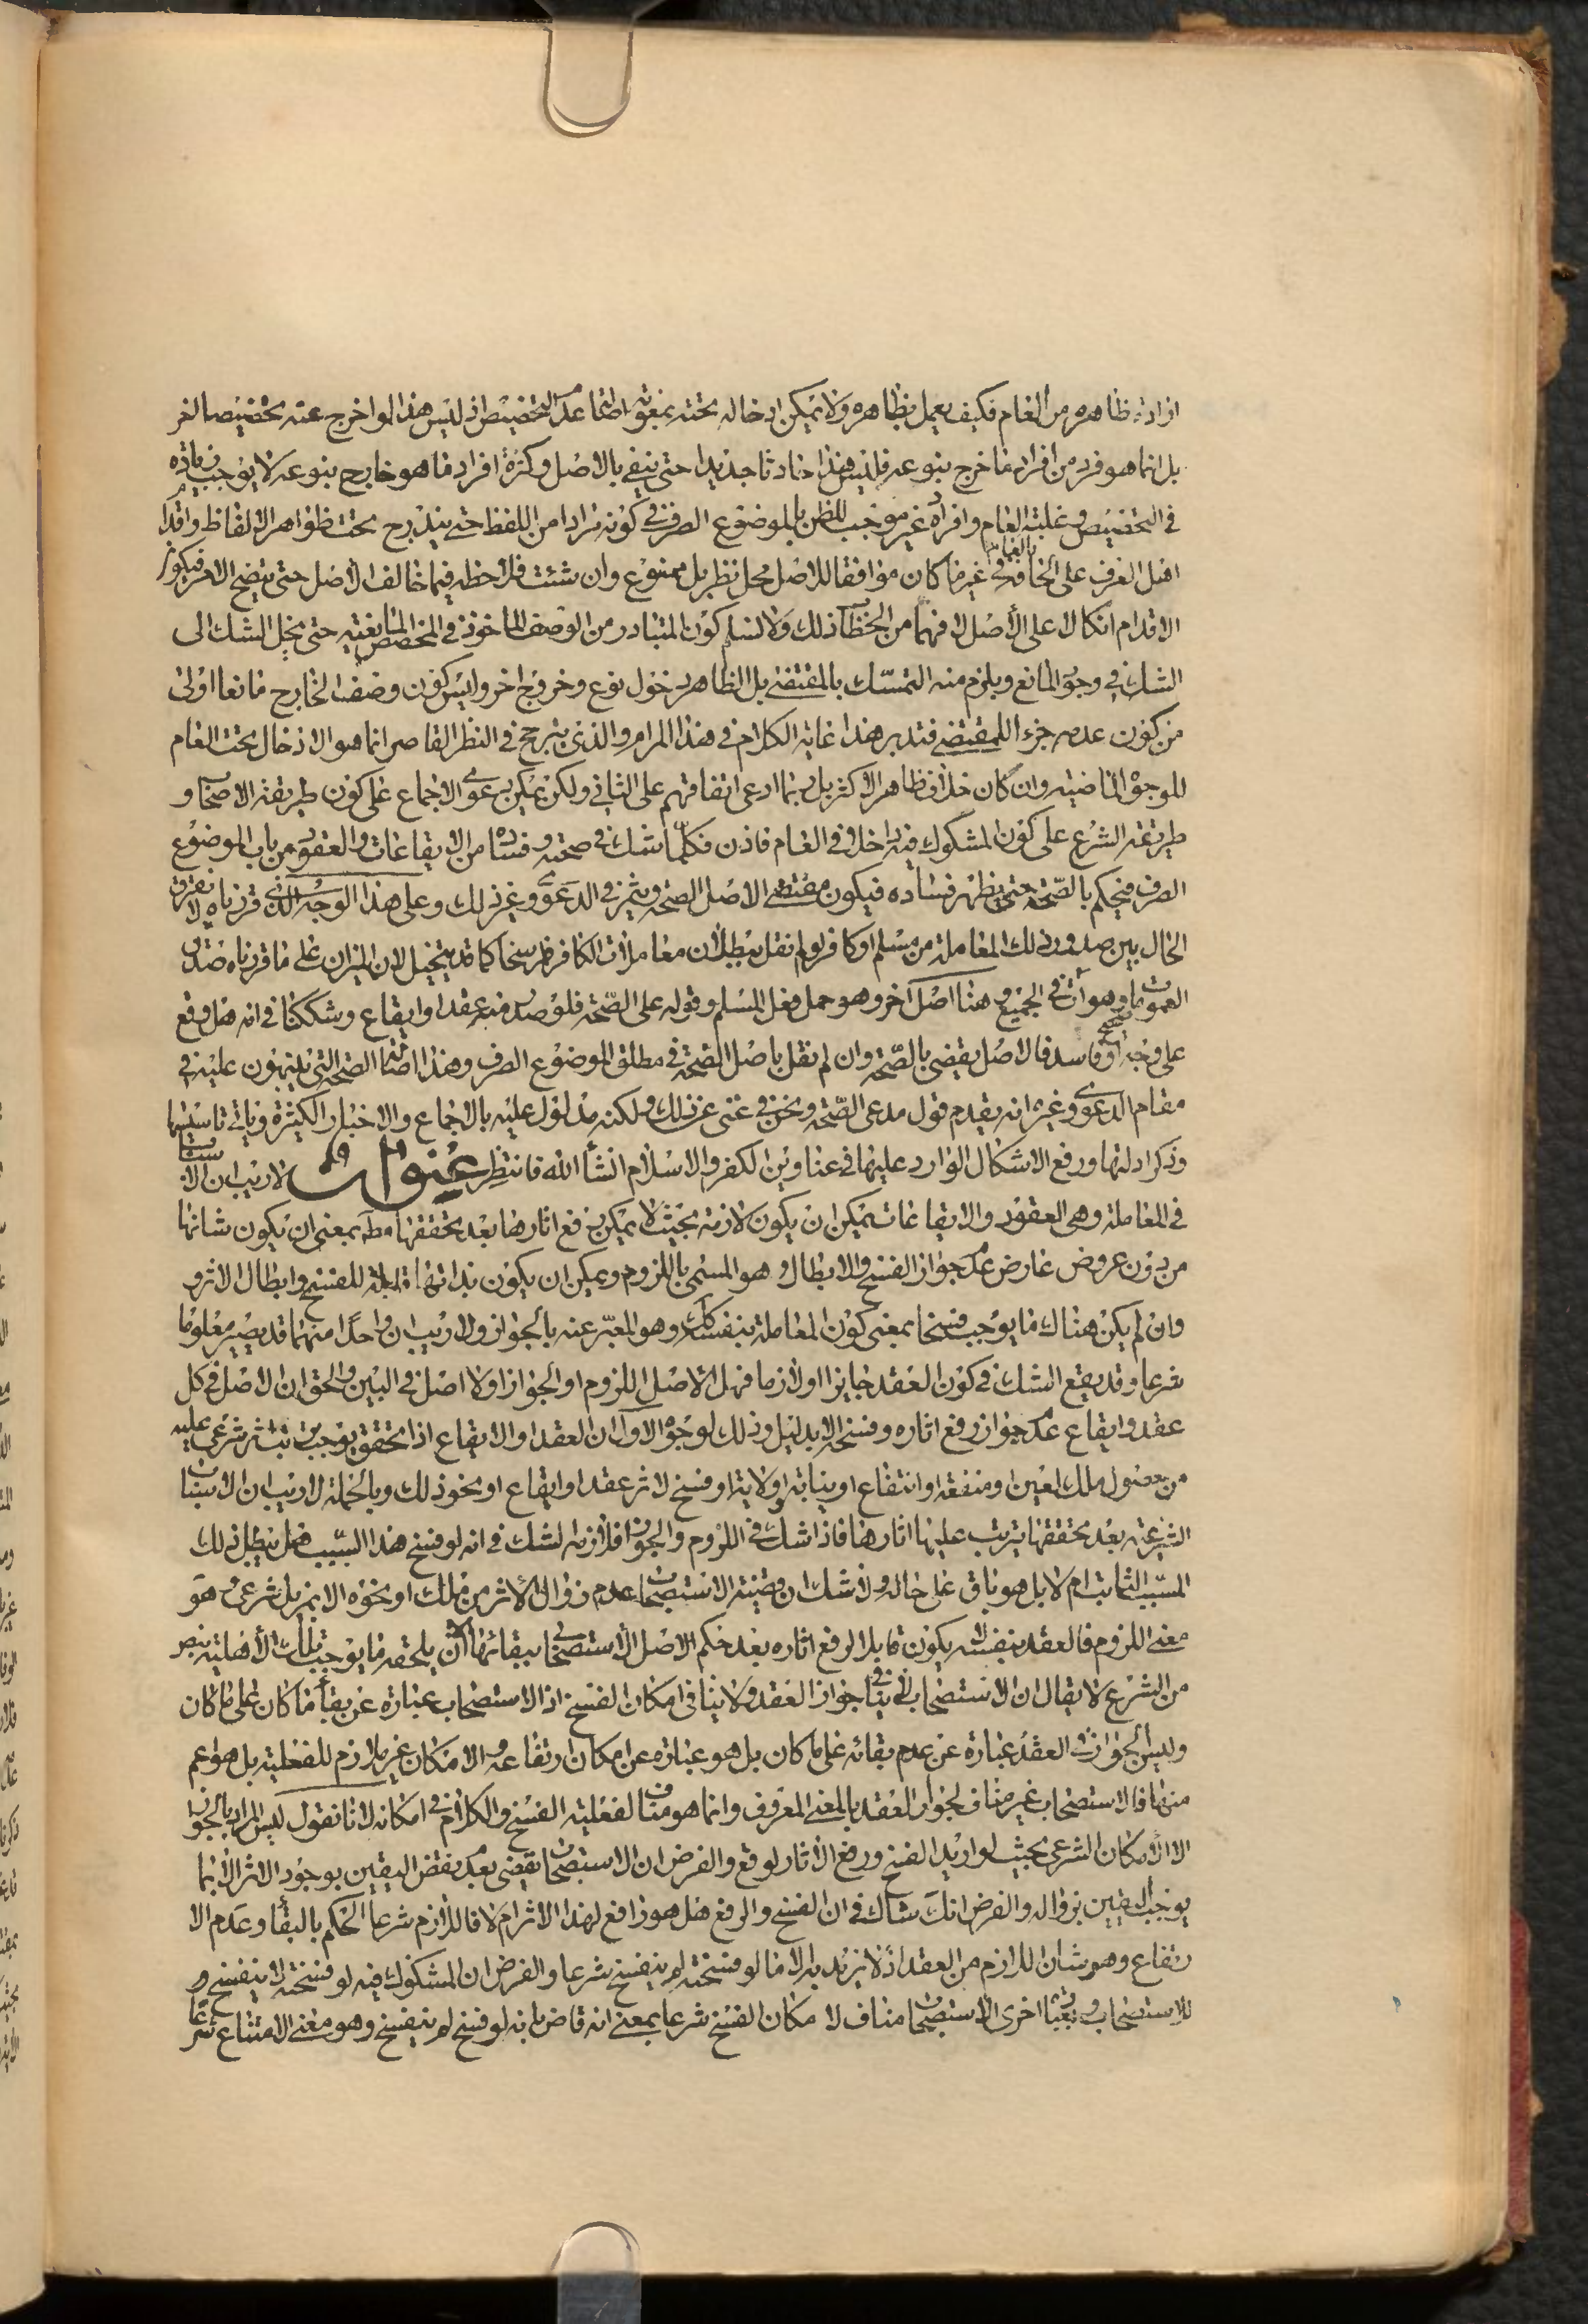 ارادة ظاهره من العام فكيف يعمل بظاهره ولا يمكن ادخاله تحته بمعونة اصالة عدم التخصيص اذ ليس هذا لو اخرج عنه تخصيصا اخر
بل انما هو فرد من افراد ما خرج بنوعه فليس هذا حادثا جديدا حتى ينفى بالاصل وكثرة افراد ما هو خارج بنوعه لا يوجب زيادة
في التخصيص وغلبة العام وافراده غير موجب للظن بالموضوع الصرف في كونه مرادا من اللفظ حتى يندرج تحت ظواهر الالفاظ واقدام
اهل العرف على الحاقه بالغالب في غير ما كان موافقا للاصل محل نظر بل ممنوع وان شئت فلاحظه فيما خالف الاصل حتى يتضح الامر فيكون
الاقدام اتكالا على الاصل لا فهما من الخطاب ذلك ولا نسلم كون المتبادر من الوصف الماخوذ في المخصص المانعية حتى ينحل الشك الى
الشك في وجود المانع ويلزم منه التمسك بالمقتضى بل الظاهر دخول نوع وخروج اخر وليس كون وصف الخارج مانعا اولى
من كون عدمه جزء للمقتضى فتدبر هذا غاية الكلام في هذا المرام والذي يترجح في النظر القاصر انما هو الادخال تحت العام
للوجوه الماضية وان كان خلاف ظاهر الاكثر بل ربما ادعى اتفاقهم على الثاني ولكن يمكن دعوى الاجماع على كون طريقة الاصحاب و
طريقة الشرع على كون المشكوك فيه داخلا في العام فاذن فكلما شك في صحته وفساده من الايقاعات والعقود من باب الموضوع
الصرف فيحكم بالصحة حتى يظهر فساده فيكون مقتضى الاصل الصحة ويثمر في الدعوى وغير ذلك وعلى هذا الوجه الذي قررناه لا يفرق
الحال بين صدور ذلك المعاملة من مسلم او كافر ولم نقل ببطلان معاملات الكافر راسا كما قد يتخيل لان الميزان على ما قررناه صدق
العمومات وهو آت في الجميع وهنا اصل آخر وهو حمل فعل المسلم وقوله على الصحة فلو صدر منه عقد او ايقاع وشككنا في انه هل وقع
على وجه صحيح او فاسد فالاصل يقضى بالصحة وان لم نقل باصل الصحة في مطلق الموضوع الصرف وهذا اصالة الصحة التي يبنون عليه في
مقام الدعوى وغيره انه يقدم قول مدعى الصحة ونحن في غنى عن ذلك ولكنه مدلول عليه بالاجماع والاخبار الكثيرة وياتي تاسيسها
وذكر ادلتها ورفع الاشكال الوارد عليها في عناوين الكفر والاسلام انشأ الله فانتظر عنوان لا ريب ان الاسباب
في المعاملة وهي العقود والايقاعات يمكن ان يكون لازمة بحيث لا يمكن رفع اثارها بعد تحققها مط بمعنى ان يكون شانها
من دون عروض عارض عدم جواز الفسخ والابطال وهو المسمى باللزوم ويمكن ان يكون بذاتها قابلة للفسخ وابطال الاثر و
وان لم يكن هناك ما يوجب فسخا بمعنى كون المعاملة بنفسها كك وهو المعبر عنه بالجواز ولا ريب ان واحدا منهما قد يصير معلوما
شرعا وقد يقع الشك في كون العقد جايزا او لازما فهل الاصل اللزوم او الجواز او لا اصل في البين والحق ان الاصل في كل
عقد وايقاع عدم جواز رفع اثاره وفسخه الا بدليل وذلك لوجوه الاول ان العقد او الايقاع اذا تحقق يوجب ترتب اثر شرعي عليه
من حصول ملك لعين او منفعة او انتفاع او نيابة او ولاية او فسخ لاثر عقد او ايقاع او نحو ذلك وبالجملة لا ريب ان الاسباب
الشرعية بعد تحققها يترتب عليها اثارها فاذا شك في اللزوم والجواز فلازمه الشك في انه لو فسخ هذا السبب فهل يبطل ذلك
المسبب الثابت ام لا بل هو باق على حاله ولا شك ان قضية الاستصحاب عدم زوال الاثر من ملك او نحوه الا بمزيل شرعي وهو
معنى اللزوم فالعقد بنفسه لا يكون قابلا لرفع اثاره بعد حكم الاصل الاستصحابي في بقائها الا ان يلحقه ما يوجب تلك الاهلية بنص
من الشرع لا يقال ان الاستصحاب لا ينافي جواز العقد ولا ينافي امكان الفسخ اذ الاستصحاب عبارة عن بقأ ما كان على ما كان
وليس الجواز في العقد عبارة عن عدم بقائه على ما كان بل هو عبارة عن امكان ارتفاعه والامكان غير ملازم للفعلية بل هو اعم
منها فالاستصحاب غير مناف لجواز العقد بالمعنى المعروف وانما هو مناف لفعلية الفسخ والكلام في امكانه لانا نقول ليس المراد بالجواز
الا الامكان الشرعي بحيث لو اريد الفسخ ورفع الاثار لوقع والفرض ان الاستصحاب يقضى بعدم نقض اليقين بوجود الاثر الا بما
يوجب اليقين بزواله والفرض انك شاك في ان الفسخ والرفع هل هو رافع لهذا الاثر ام لا فاللازم شرعا الحكم بالبقأ وعدم الا
رتفاع وهو شان اللازم من العقد اذ لا نريد به الا ما لو فسخته لم ينفسخ شرعا والفرض ان المشكوك فيه لو فسخته لا ينفسخ و
للاستصحاب وبعبارة اخرى الاستصحاب مناف لامكان الفسخ شرعا بمعنى انه قاض بانه لو فسخ لم ينفسخ وهو معنى الامتناع شرعا